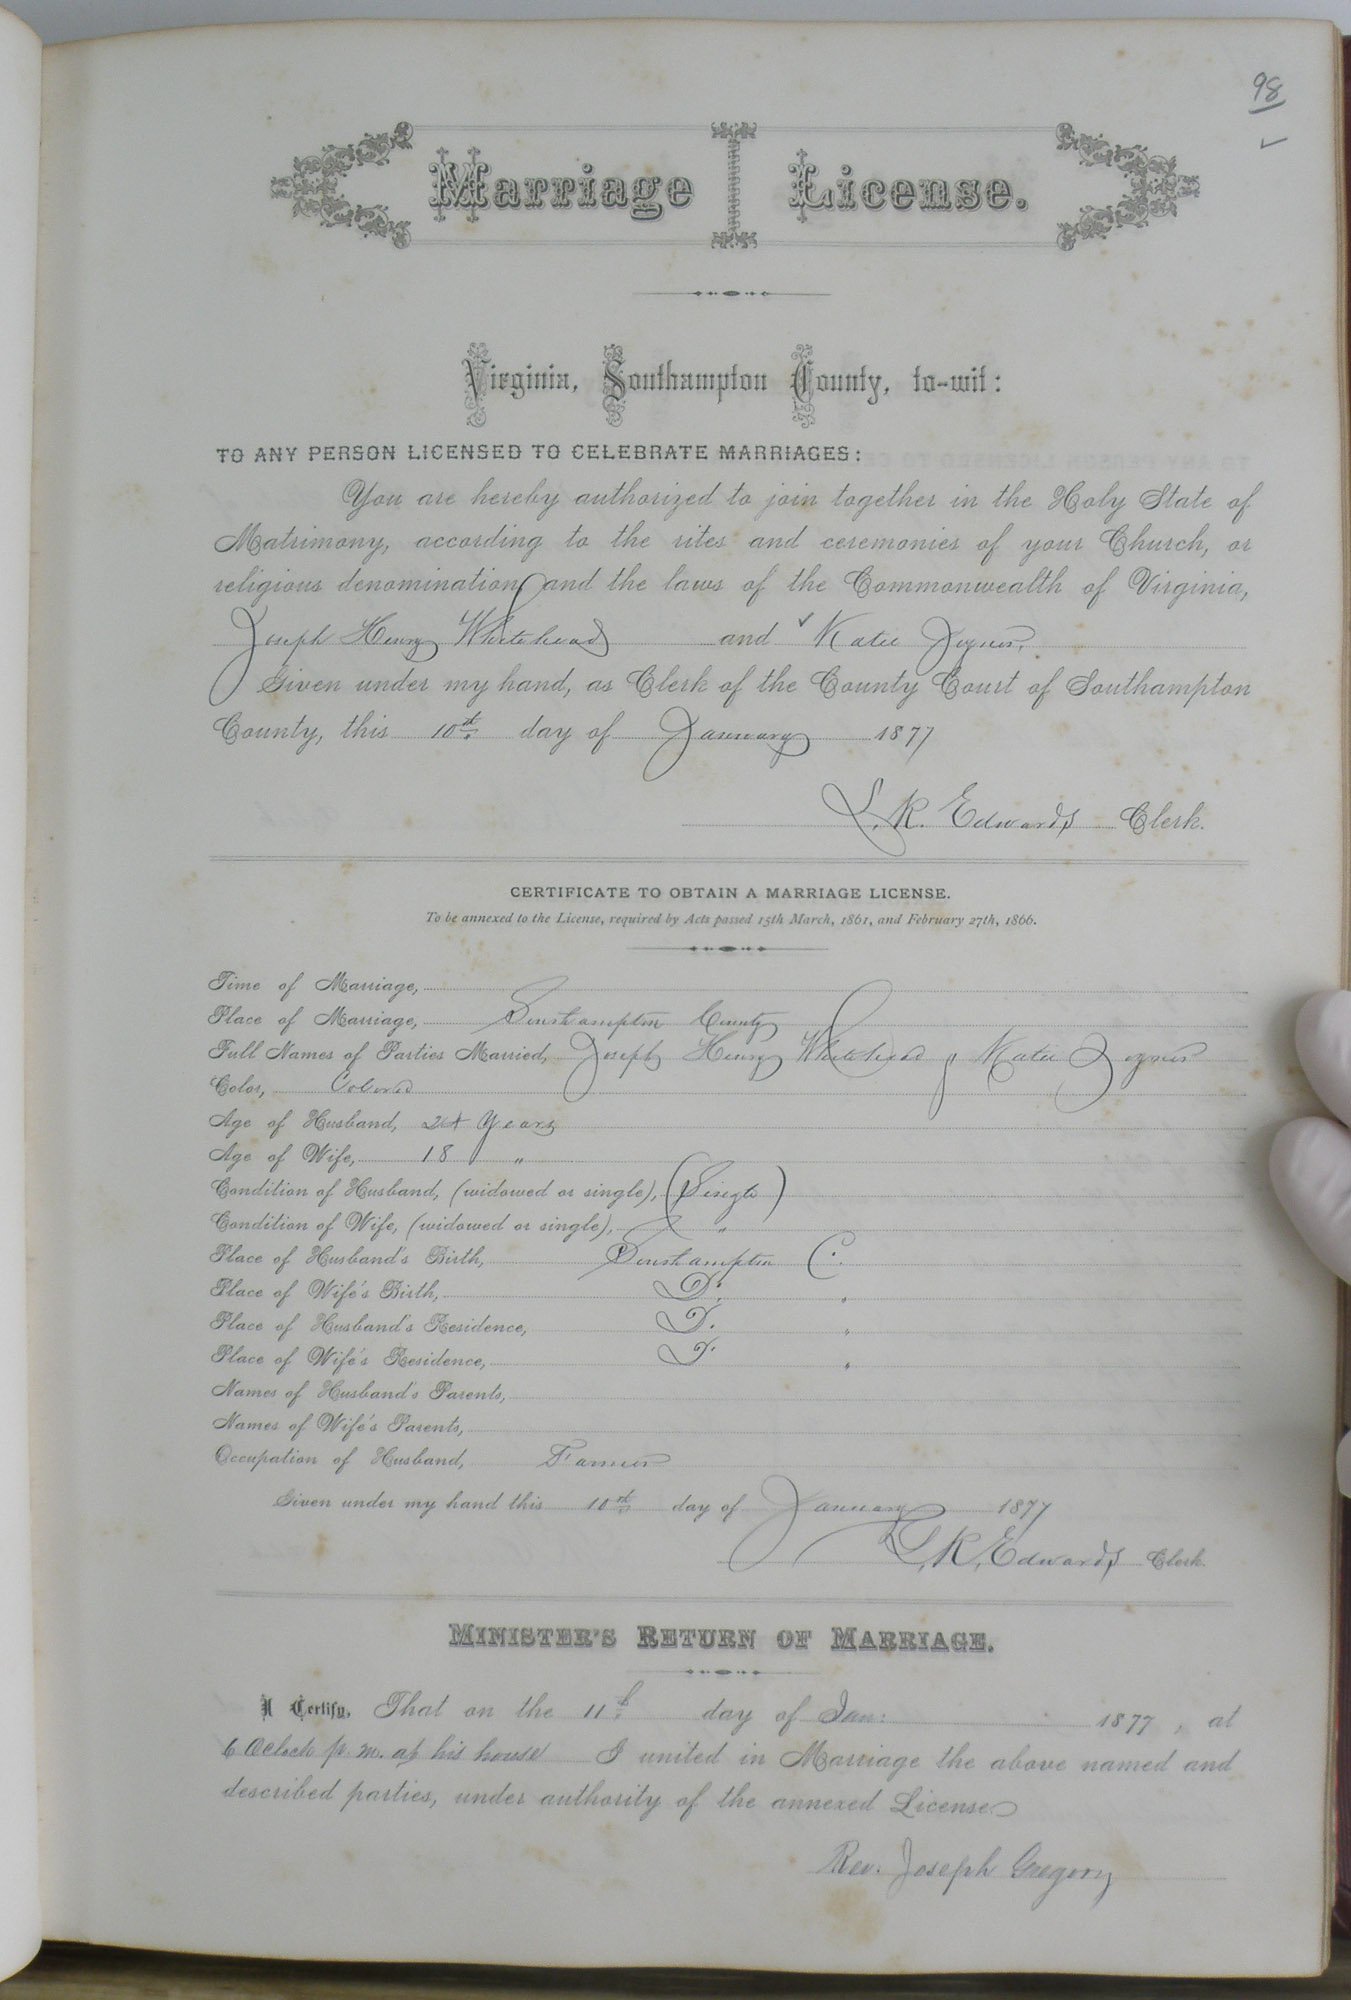 98
✓
Marriage License.
Virginia, Southampton County, to-wit:
TO ANY PERSON LICENSED TO CELEBRATE MARRIAGES:
You are hereby authorized to join together in the Holy State of
Matrimony, according to the rites and ceremonies of your Church, or
religious denomination, and the laws of the Commonwealth of Virginia,
Joseph Henry Whitehead and ✓ Katie Joyner.
Given under my hand, as Clerk of the County Court of Southampton
County, this 10th day of January 1877
L. R. Edwards Clerk.
CERTIFICATE TO OBTAIN A MARRIAGE LICENSE.
To be annexed to the License, required by Acts passed 15th March, 1861, and February 27th, 1866.
Time of Marriage,
Place of Marriage, Southampton County
Full Names of Parties Married, Joseph Henry Whitehead & Katie Joyner
Color, Colored
Age of Husband, 24 Years
Age of Wife, 18 "
Condition of Husband, (widowed or single), (Single)
Condition of Wife, (widowed or single), "
Place of Husband's Birth, Southampton C.
Place of Wife's Birth, D. "
Place of Husband's Residence, D. "
Place of Wife's Residence, D. "
Names of Husband's Parents,
Names of Wife's Parents,
Occupation of Husband, Farmer
Given under my hand this 10th day of January 1877
L. R. Edwards Clerk.
MINISTER'S RETURN OF MARRIAGE.
I Certify, That on the 11th day of Jan: 1877, at
6 Oclock p. m. at his house I united in Marriage the above named and
described parties, under authority of the annexed License.
Rev. Joseph Gregory